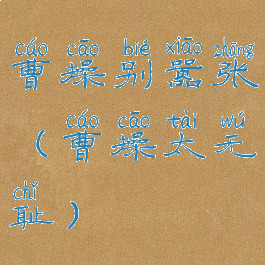 cáo cāo bié xiāo zhāng
曹操别嚣张
cáo cāo tài wú
（曹操太无
chǐ
耻）